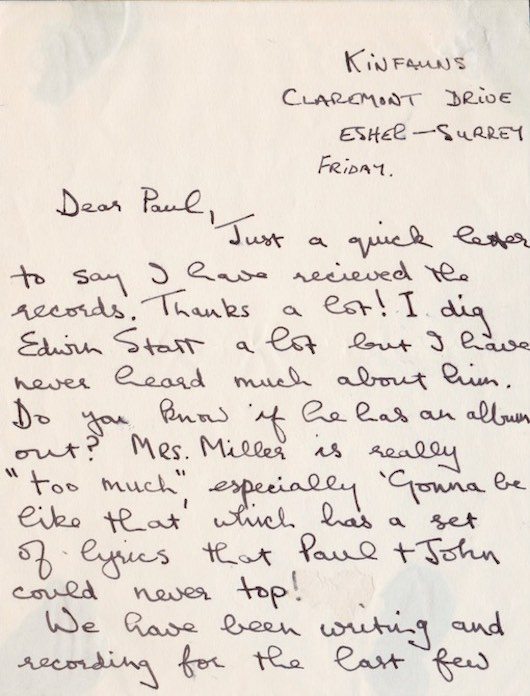 KINFAUNS
CLAREMONT DRIVE
ESHER — SURREY
FRIDAY.
Dear Paul,
Just a quick letter
to say I have recieved the
records. Thanks a lot! I dig
Edwin Starr a lot but I have
never heard much about him.
Do you know if he has an album
out? MRS. Miller is really
"too much", especially 'Gonna be
like that' which has a set
of lyrics that Paul + John
could never top!
We have been writing and
recording for the last few